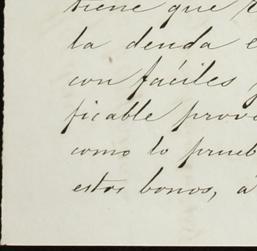 tiene que
la deuda e
con fáciles
ficable prove
como lo prueb
estos bonos, á